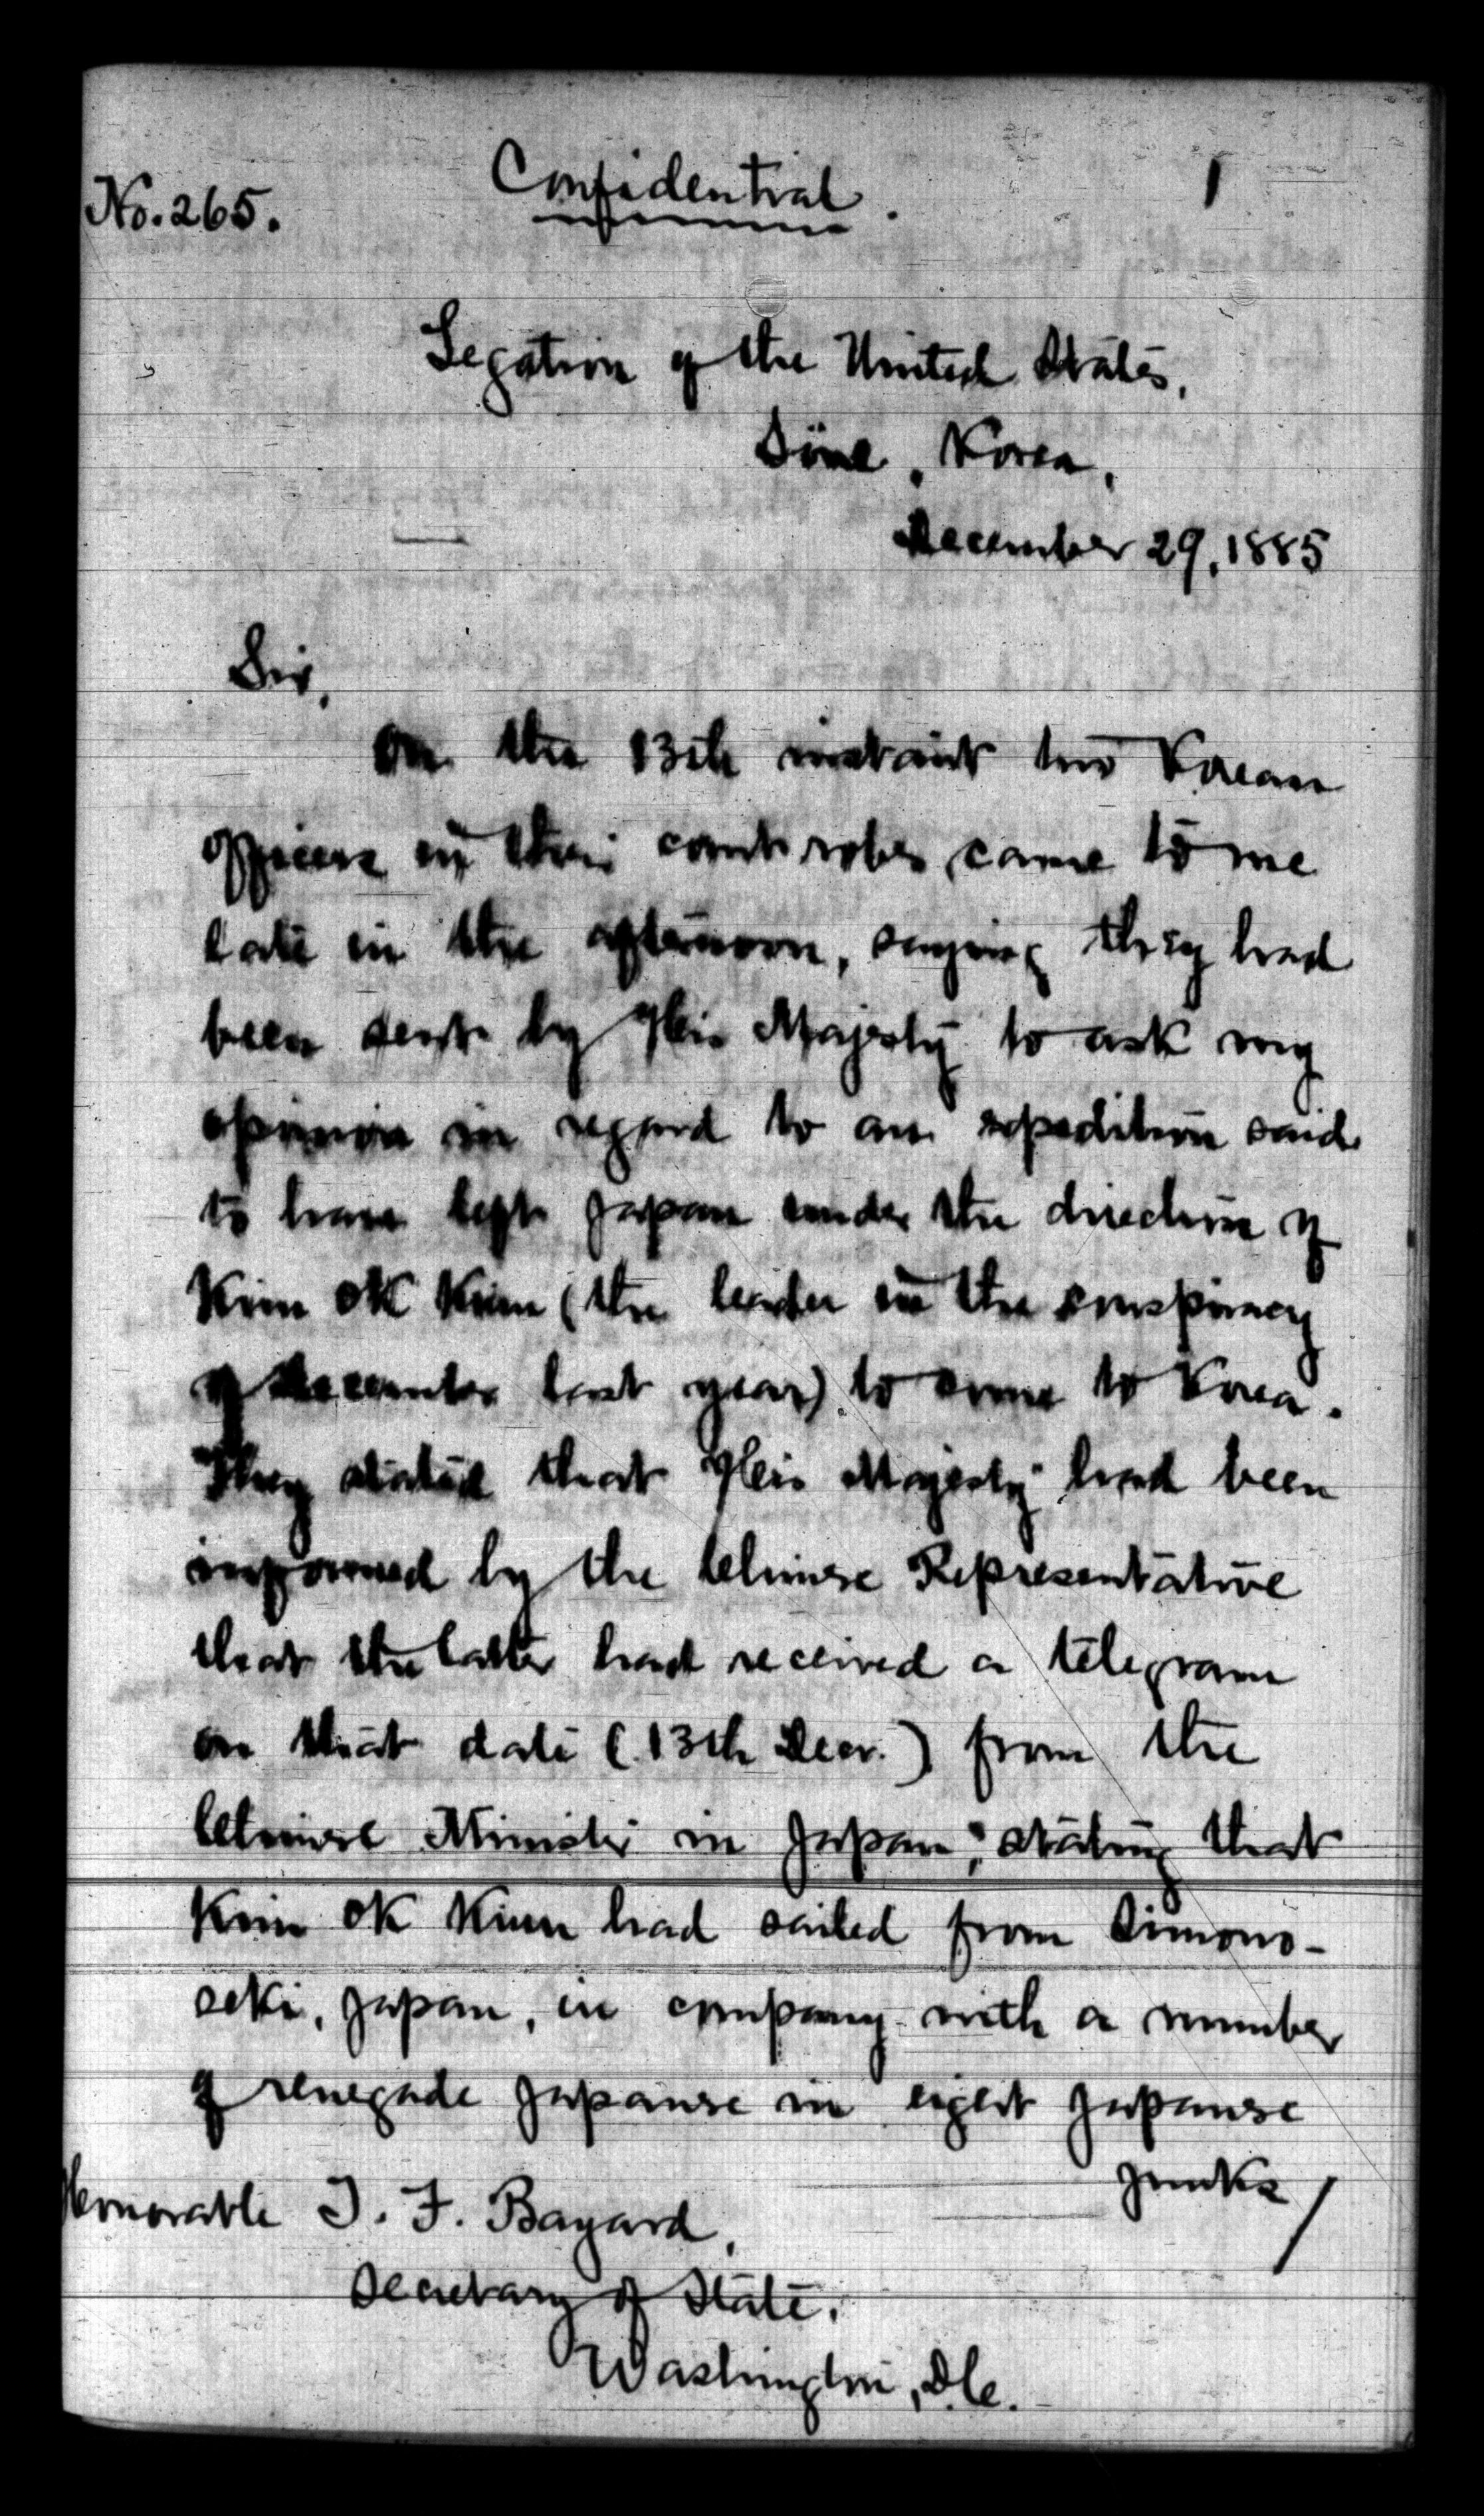 Confidential.
1
No. 265.
Legation of the United States,
Söul, Korea,
December 29, 1885
Sir,
On the 13th instant two Korean
officers in their court robes, came to me
late in the afternoon, saying they had
been sent by His Majesty to ask my
opinion in regard to an expedition said
to have left Japan under the direction of
Kim Ok Kiun (the leader in the conspiracy
of December last year) to come to Korea.
They stated that His Majesty had been
informed by the Chinese Representative
that the latter had received a telegram
on that date (13th Decr.) from the
Chinese Minister in Japan, stating that
Kim Ok Kiun had sailed from Simono-
seki, Japan, in company with a number
of renegade Japanese in eight Japanese
junks/
Honorable T. F. Bayard,
Secretary of State,
Washington, D.C.